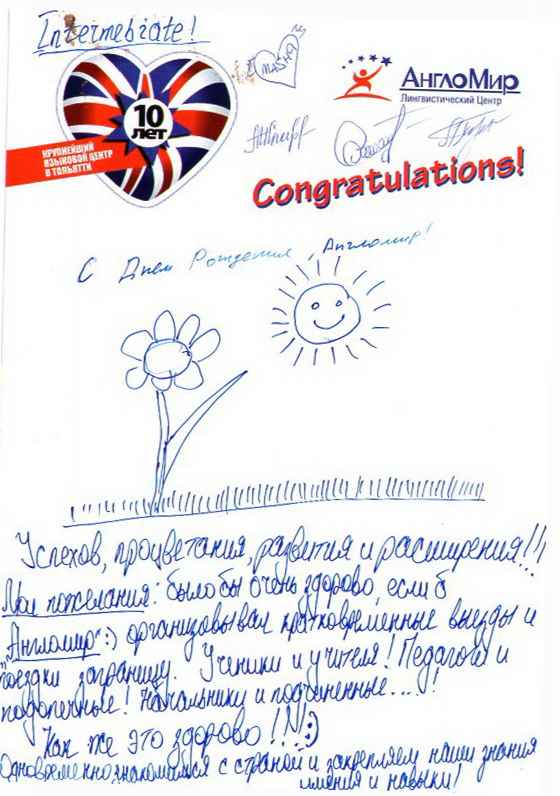 Intermebiate!
MASHA
10
ЛЕТ
КРУПНЕЙШИЙ
ЯЗЫКОВОЙ ЦЕНТР
В ТОЛЬЯТТИ
АнглоМир
Лингвистический Центр
Congratulations!
С Днем Рождения, Англомир!
Успехов, процветания, развития и расширения!!!
Мои пожелания: было бы очень здорово, если б
„Англомир" :) организовывал кратковременные выезды и
поездки заграницу. Ученики и учителя! Педагоги и
подопечные! Начальники и подчиненные....!
Как же это здорово!!! :)
Одновременно знакомимся с страной и закрепляем наши знания
умения и навыки!